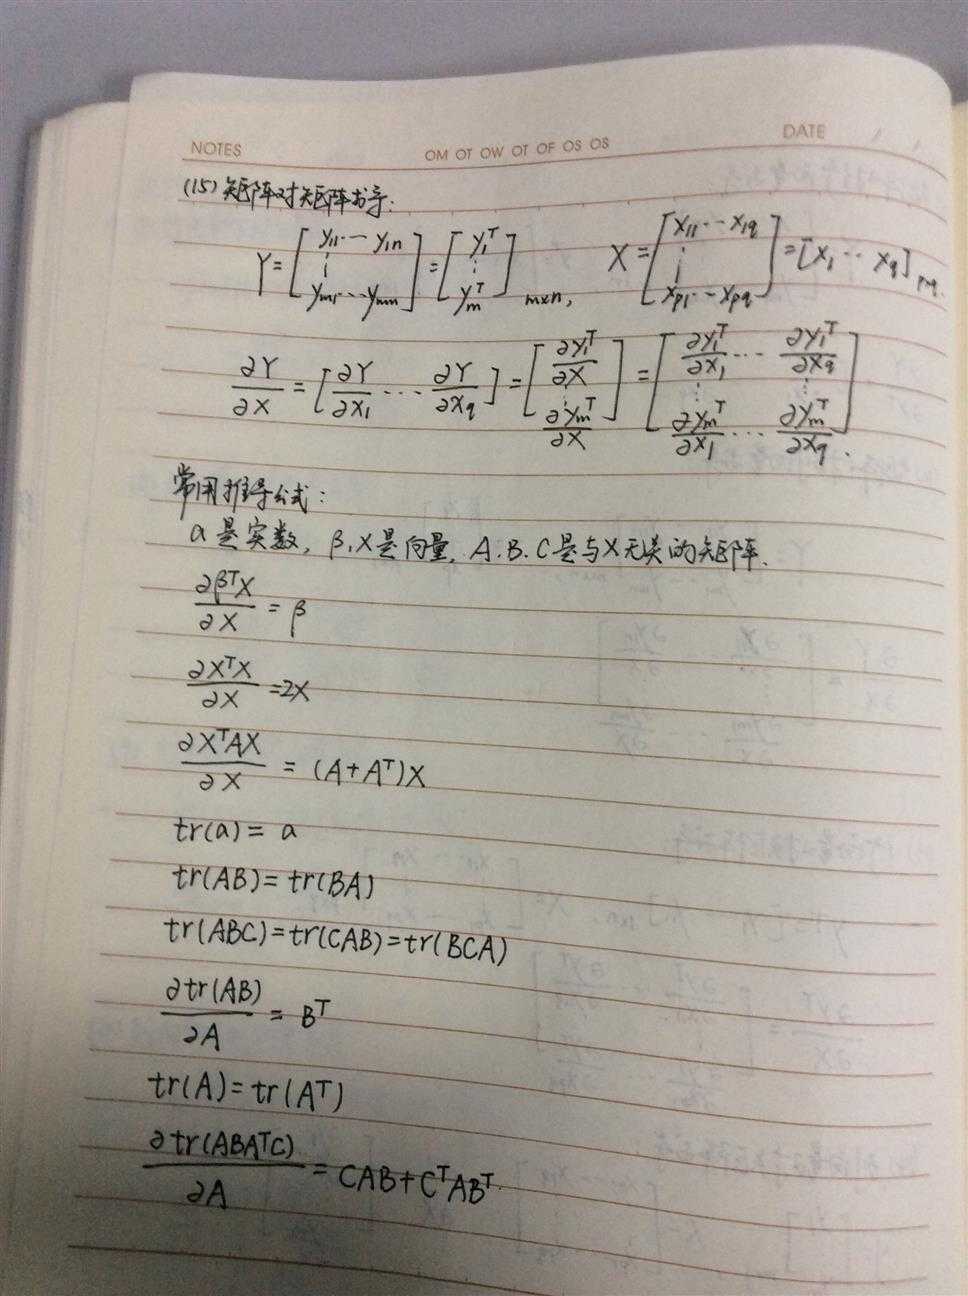 NOTES OM OT OW OT OF OS OS DATE
(15) 矩阵对矩阵求导:
Y = [y₁₁ ··· y₁ₙ ⋮ yₘ₁ ··· yₘₙ] = [y₁ᵀ ⋮ yₘᵀ] m×n, X = [x₁₁ ··· x₁q ⋮ xp₁ ··· xpq] = [x₁ ·· xq] p×q.
∂Y/∂X = [∂Y/∂x₁ ··· ∂Y/∂xq] = [∂y₁ᵀ/∂X ⋮ ∂yₘᵀ/∂X] = [∂y₁ᵀ/∂x₁ ··· ∂y₁ᵀ/∂xq ⋮ ∂yₘᵀ/∂x₁ ··· ∂yₘᵀ/∂xq].
常用推导公式:
a是实数, β,X是向量, A.B.C是与X无关的矩阵.
∂βᵀX/∂X = β
∂XᵀX/∂X = 2X
∂XᵀAX/∂X = (A+Aᵀ)X
tr(a) = a
tr(AB) = tr(BA)
tr(ABC) = tr(CAB) = tr(BCA)
∂tr(AB)/∂A = Bᵀ
tr(A) = tr(Aᵀ)
∂tr(ABAᵀC)/∂A = CAB + CᵀABᵀ.